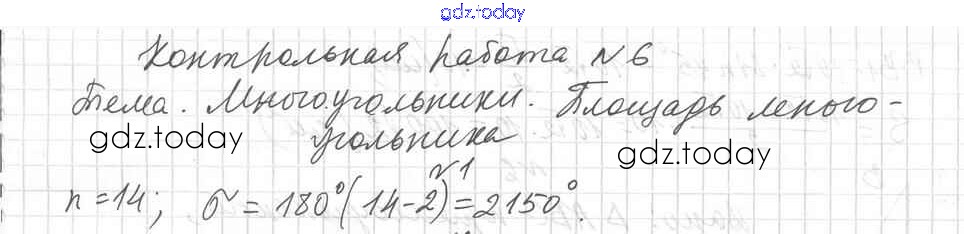 gdz.today
Контрольная работа N 6
Тема. Многоугольники. Площадь много-
угольника
gdz.today
gdz.today
N 1
n = 14; σ = 180°(14-2) = 2150°.